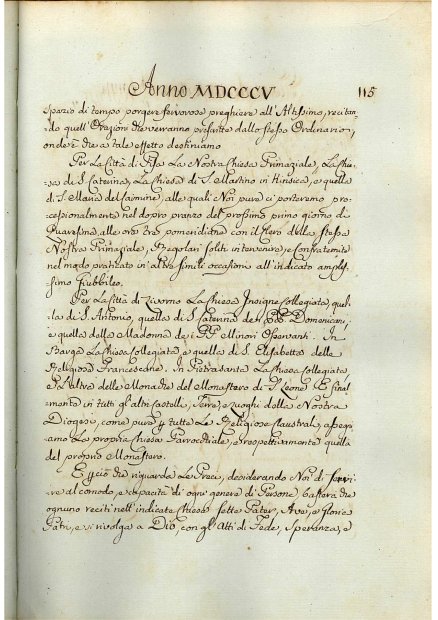 Anno MDCCCV 115
spazio di tempo porgere fervorose preghiere all'Altissimo, recitan
do quell'Orazioni che verranno prescritte dallo stesso Ordinario,
onde è che a tale effetto destiniamo
Per La Città di Pisa La Nostra Chiesa Primaziale, La Chie
sa di S. Caterina, La Chiesa di S. Martino in Kinsica, e quella
di S. Maria del Carmine, alle quali Noi pure ci porteremo pro
cessionalmente nel dopo pranzo del prossimo primo giorno di
Quaresima, alle ore tre pomeridiane con il Clero della stessa
Nostra Primaziale, Regolari soliti intervenire, e Confraternite
nel modo praticato in altre simili occasione all'indicato amplis
simo Giubbileo.
Per La Città di Livorno La Chiesa Insigne Collegiata, quel
la di S. Antonio, quella di S. Caterina de PP. Domenicani,
e quella della Madonna de PP. Minori Osservanti. In
Barga La Chiesa Collegiata e quella di S. Elisabetta delle
Religiose Francescane. In Pietrasanta La Chiesa Collegiata
e l'altra delle Monache del Monastero di S. Leone. E final
mente in tutti gli altri Castelli, Terre, e Luoghi della Nostra
Diogesi, come pure p tutte Le Religiose Claustrali, assegni
amo La propria Chiesa Parrocchiale, e respettivamente quella
del proprio Monastero.
E p ciò che riguarda Le Preci, desiderando Noi di servi
re al comodo, e capacità di ogni genere di Persone, basterà che
ognuno reciti nell'indicate Chiese sette Pater, Ave, e Gloria
Patri, e si rivolga a Dio, con gl'Atti di Fede, Speranza, e